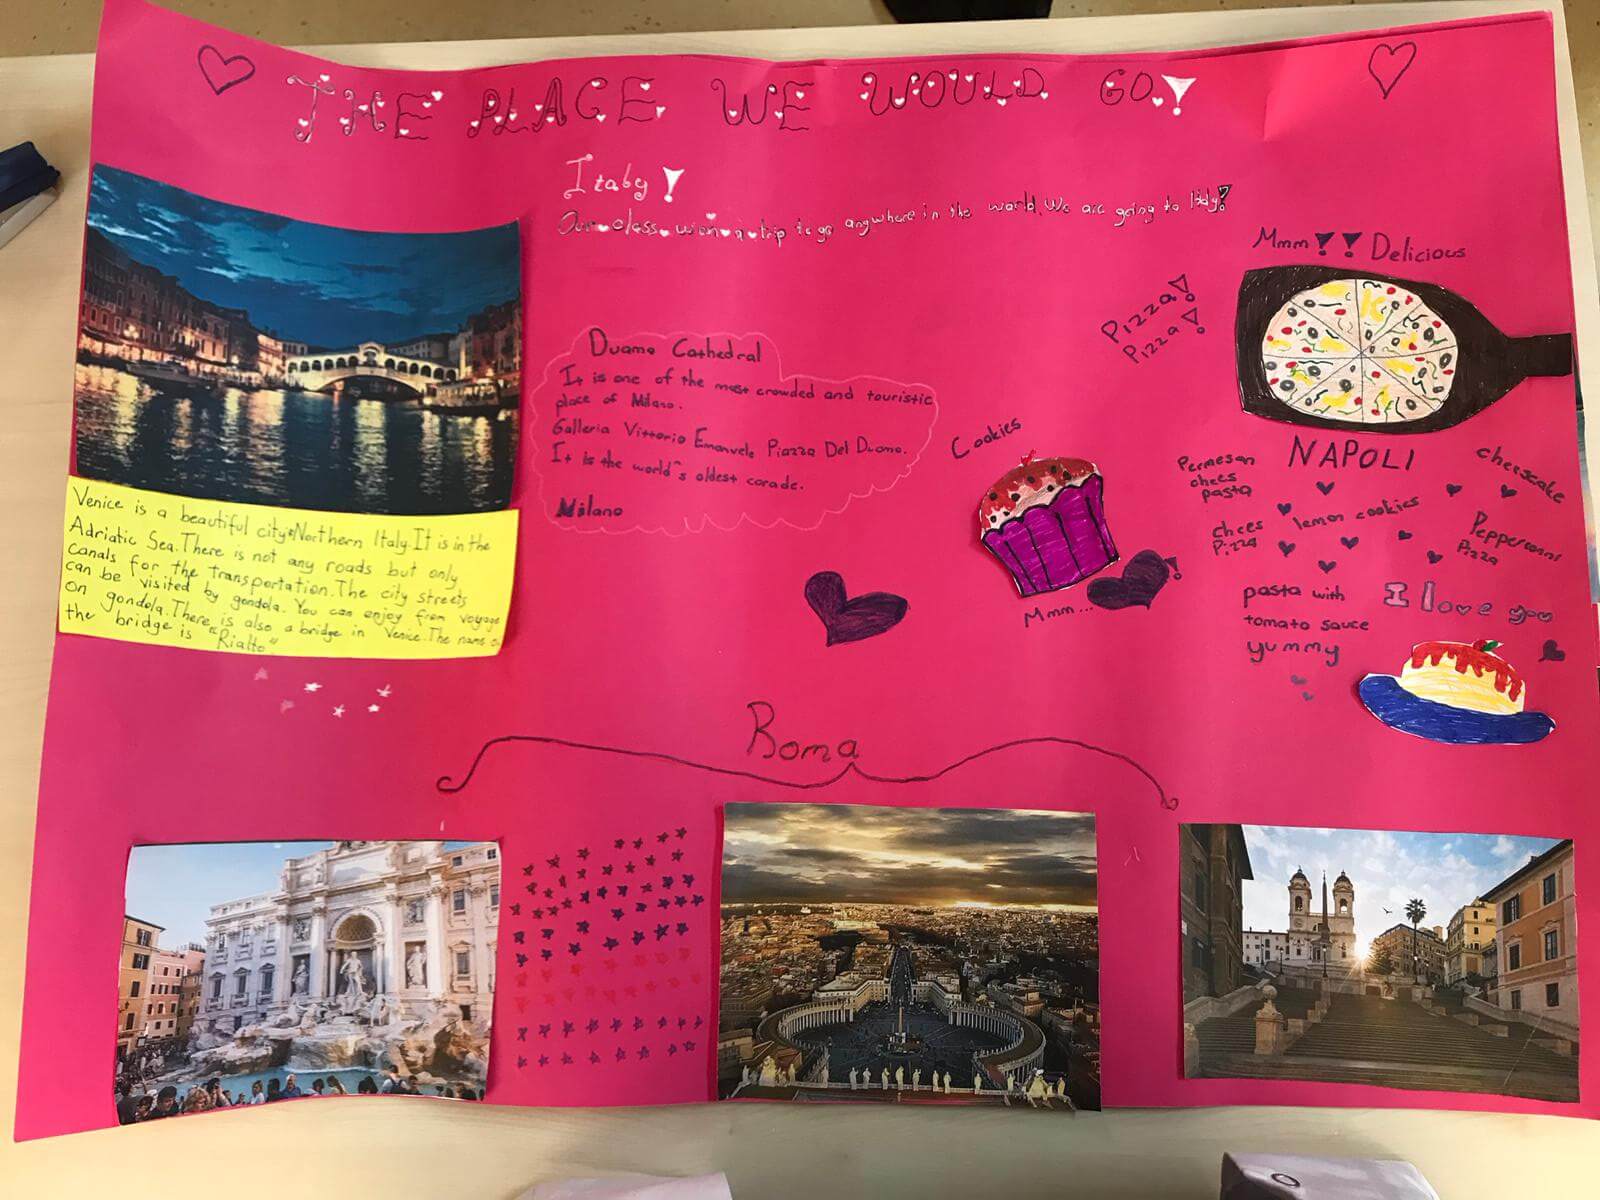 THE PLACE WE WOULD GO!
Italy!
Our class won a trip to go anywhere in the world. We are going to Italy!
Venice is a beautiful city Northern Italy. It is in the
Adriatic Sea. There is not any roads but only
canals for the transportation. The city streets
can be visited by gondola. You can enjoy from voyage
on gondola. There is also a bridge in Venice. The name o
the bridge is "Rialto"
Duamo Cathedral
It is one of the most crowded and touristic
place of Milano.
Galleria Vittorio Emanuele Piazza Del Duomo.
It is the world's oldest corade.
Milano
Pizza!
Pizza!
Mmm!! Delicious
Cookies
Mmm...
NAPOLI
Permesan
chees
pasta
cheescake
lemon cookies
chees
Pizza
Pepperconni
Pizza
pasta with
tomato sauce
yummy
I love you
Roma